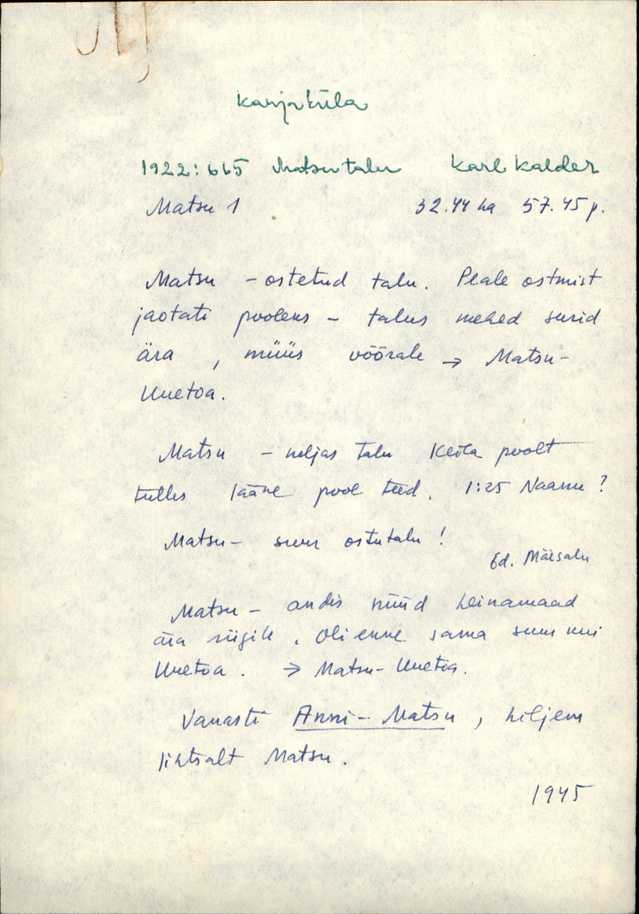 Karjaküla
1922: 665 Matsu talu Karl Kalder
Matsu 1 32.44 ha 57.45 p.
Matsu - ostetud talu. Peale ostmist
jaotati pooleks - talus mehed surid
ära, müüs võõrale → Matsu-
Uuetoa.
Matsu - neljas talu Keila poolt
tulles lääne pool teed. 1:25 Naanu?
Matsu - suur ostutalu!
Ed. Mäesalu
Matsu - andis nüüd heinamaad
ära riigile. Oli enne sama suur kui
Uuetoa. → Matsu-Uuetoa.
Vanasti Anni-Matsu, hiljem
lihtsalt Matsu.
1945